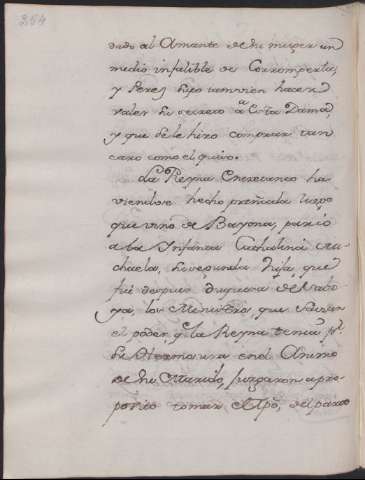 264
dado al Amante de su muger un
medio infalible de Corromperla,
y Perez supo tamvien hacer
valer su secreto a esta Dama,
y que se le hizo comprar tan
caro como el quiso.
La Reyna Entretanto ha
viendose hecho preñada luego
que vino de Bayona, pario
a la Infanta Cathalina Mi
chaela, su segunda hija, que
fue despues Duquesa de Sabo
ya, los Ministros, que savian
el poder, q.e la Reyna tenia p.r
su Hermosura en el Animo
de su Marido, juzgaron a pro
posito tomar el tpo, del parto